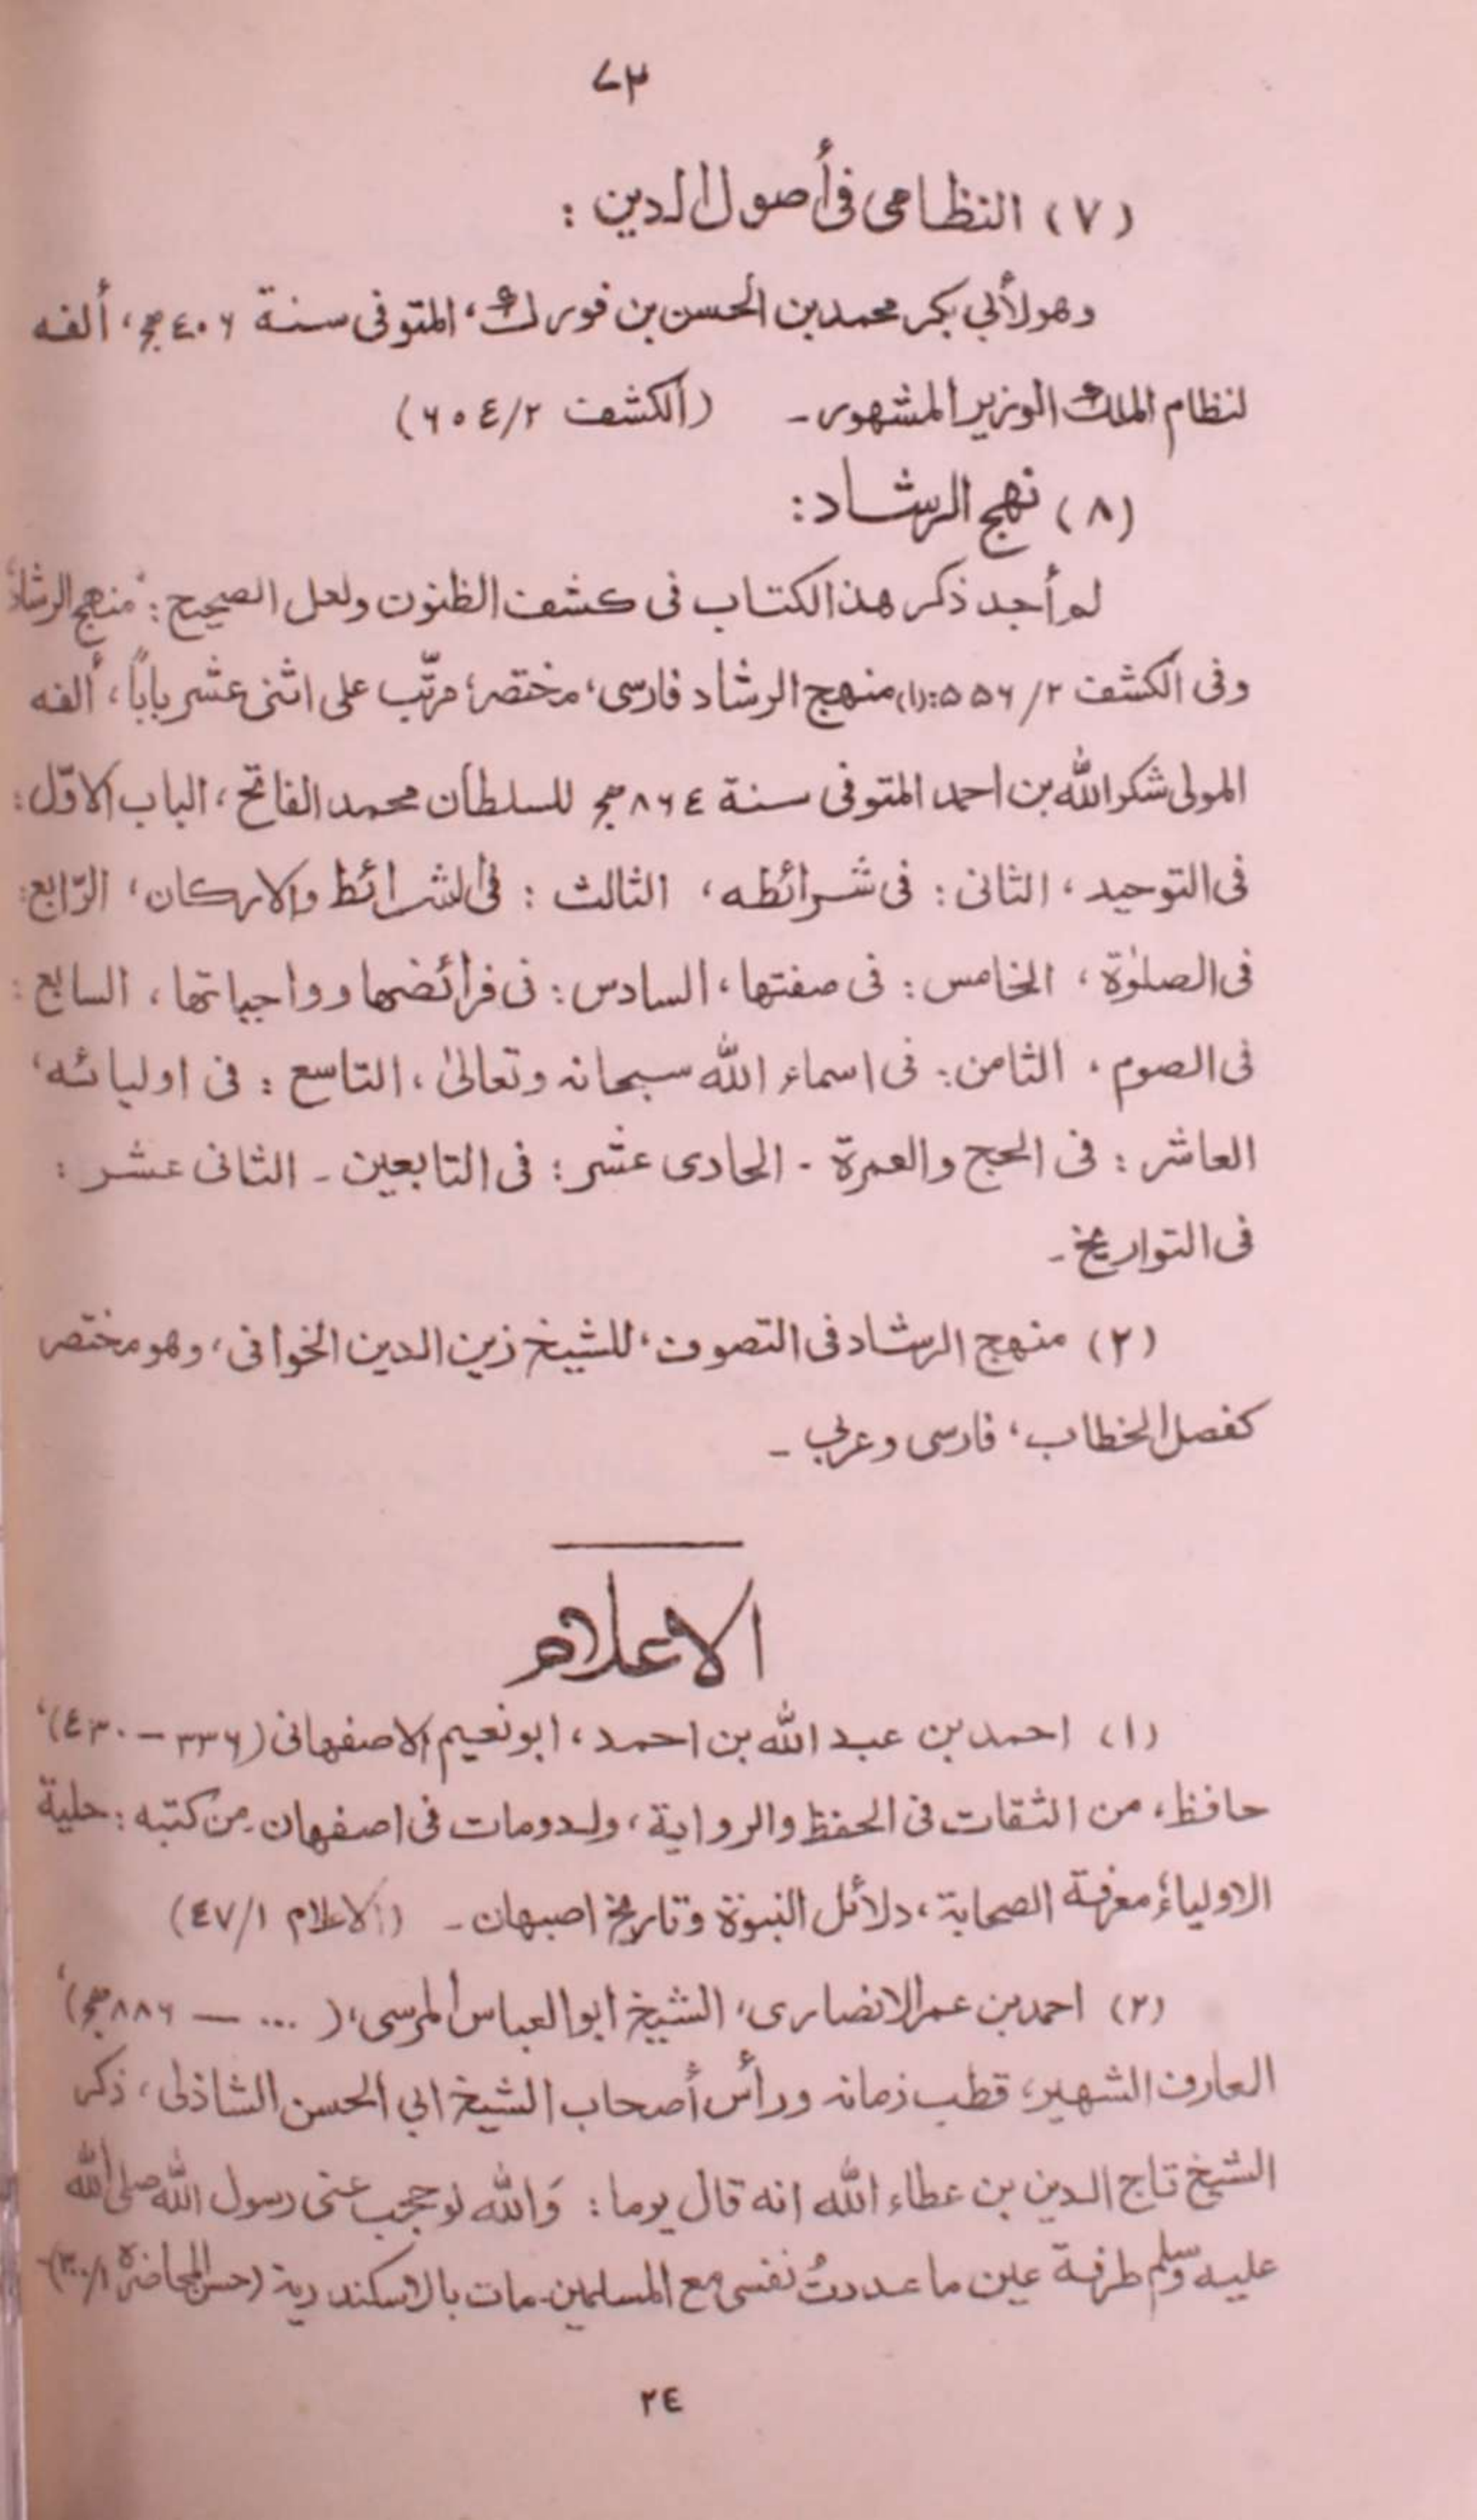 ٧٣
(٧) النظامى فى أصول الدين :
وهو لأبي بكر محمد بن الحسن بن فورك، المتوفى سنة ٤٠٦ هج، ألفه
لنظام الملك الوزير المشهور۔ (الكشف ٢/٦٠٤)
(٨) نهج الرشاد :
لم أجد ذكر هذا الكتاب فى كشف الظنون ولعل الصحيح : "منهج الرشاد"
وفى الكشف ٢/٥٥٦ :(١) منهج الرشاد فارسى، مختصر، مرتّب على اثنى عشر باباً، ألفه
المولى شكر الله بن احمد المتوفى سنة ٨٦٤ هج للسلطان محمد الفاتح، الباب الاوّل :
فى التوحيد، الثانى : فى شرائطه، الثالث : فى الشرائط والاركان، الرّابع :
فى الصلوٰة، الخامس : فى صفتها، السادس : فى فرائضها وواجباتها، السابع :
فى الصوم، الثامن : فى اسماء الله سبحانه وتعالىٰ، التاسع : فى اوليائه،
العاشر : فى الحج والعمرة ۔ الحادى عشر : فى التابعين ۔ الثانى عشر :
فى التواريخ ۔
(٢) منهج الرشاد فى التصوف، للشيخ زين الدين الخوافى، وهو مختصر
كفصل الخطاب، فارسى وعربي ۔
الاعلام
(١) احمد بن عبد الله بن احمد، ابو نعيم الاصفهانى (٣٣٦ – ٤٣٠)،
حافظ، من الثقات فى الحفظ والرواية، ولد ومات فى اصفهان۔ من كتبه : حلية
الاولياء، معرفة الصحابة، دلائل النبوّة وتاريخ اصبهان ۔ (الاعلام ١/٤٧)
(٢) احمد بن عمر الانصارى، الشيخ ابو العباس المرسى، (... – ٨٨٦ هج)،
العارف الشهير، قطب زمانه ورأس أصحاب الشيخ ابي الحسن الشاذلى، ذكر
الشيخ تاج الدين بن عطاء الله انه قال يوما : وَالله لو حجب عنى رسول الله صلى الله
عليه وسلم طرفة عين ما عددتُ نفسى مع المسلمين۔ مات بالاسكندرية (حسن المحاضرة ١/٣٠٠)
٢٤